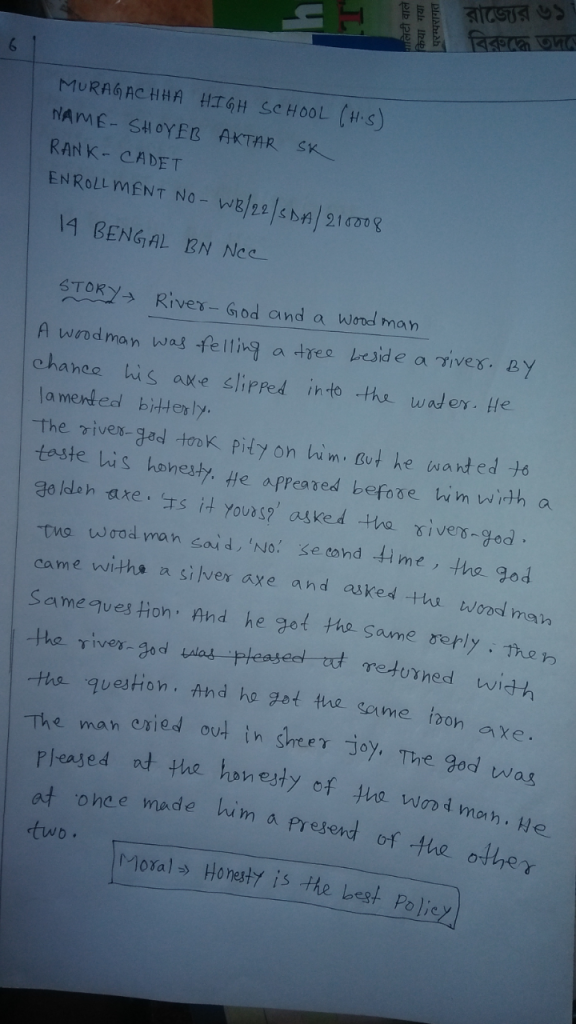 h
T
ালিটী वाले
किया गया
परम्परागत
রাজ্যের ৬১
বিরুদ্ধে তদন্ত
6
MURAGACHHA HIGH SCHOOL (H.S)
NAME- SHOYEB AKTAR SK
RANK- CADET
ENROLLMENT NO- WB/22/SDA/210008
14 BENGAL BN NCC
STORY→ River-God and a Woodman
A woodman was felling a tree beside a river. BY
chance his axe slipped into the water. He
lamented bitterly.
The river-god took pity on him. But he wanted to
taste his honesty. He appeared before him with a
golden axe. 'Is it yours?' asked the river-god.
The woodman said, 'No.' second time, the god
came with a silver axe and asked the woodman
Same question. And he got the same reply. Then
the river-god was pleased at returned with
the question. And he got the same iron axe.
The man cried out in sheer joy. The god was
pleased at the honesty of the woodman. He
at once made him a present of the other
two.
Moral⇒ Honesty is the best Policy